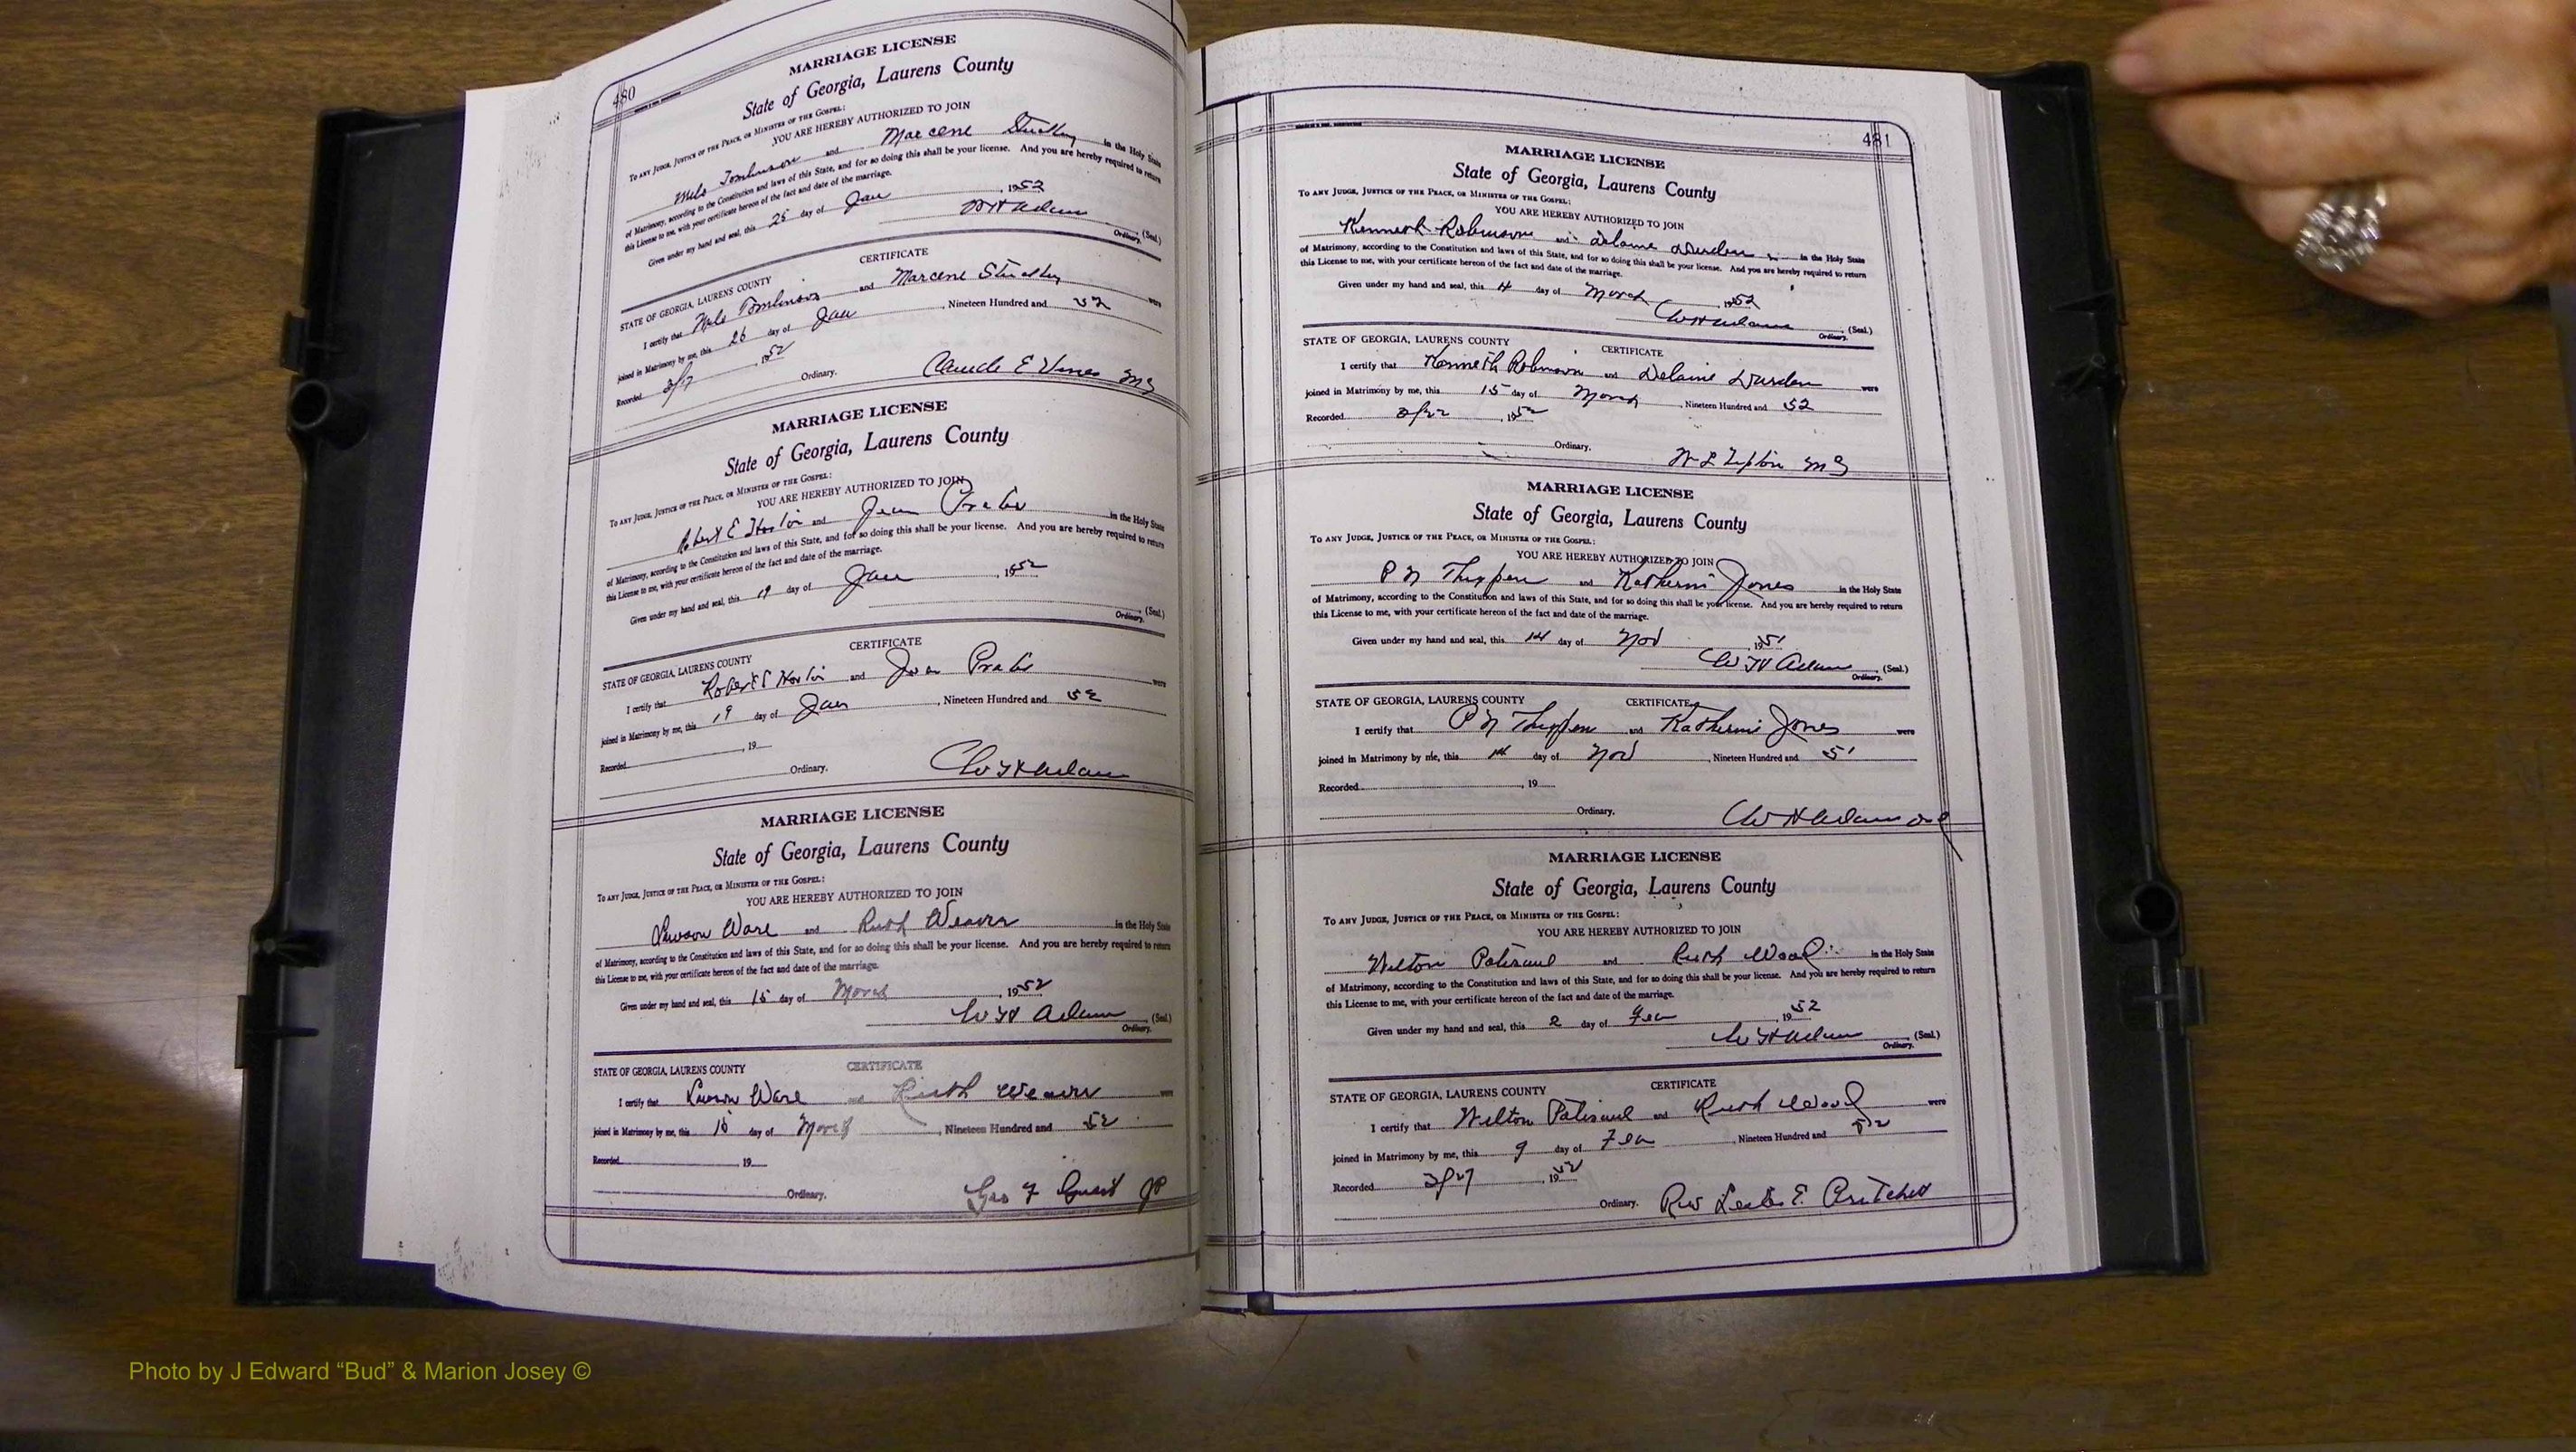 480
MARRIAGE LICENSE
State of Georgia, Laurens County
TO ANY JUDGE, JUSTICE OF THE PEACE, OR MINISTER OF THE GOSPEL:
YOU ARE HEREBY AUTHORIZED TO JOIN
Milo Tomlinson and Marcene Stuckey in the Holy State
of Matrimony, according to the Constitution and laws of this State, and for so doing this shall be your license. And you are hereby required to return
this License to me, with your certificate hereon of the fact and date of the marriage.
Given under my hand and seal, this 25 day of Jan, 1952
W H Adams (Seal.)
Ordinary.
CERTIFICATE
STATE OF GEORGIA, LAURENS COUNTY
I certify that Milo Tomlinson and Marcene Stuckey were
joined in Matrimony by me, this 26 day of Jan, Nineteen Hundred and 52
Recorded 2/7, 1952
Ordinary. Claude E Vines MG
MARRIAGE LICENSE
State of Georgia, Laurens County
TO ANY JUDGE, JUSTICE OF THE PEACE, OR MINISTER OF THE GOSPEL:
YOU ARE HEREBY AUTHORIZED TO JOIN
Robert E and Jean in the Holy State
of Matrimony, according to the Constitution and laws of this State, and for so doing this shall be your license. And you are hereby required to return
this License to me, with your certificate hereon of the fact and date of the marriage.
Given under my hand and seal, this 19 day of Jan, 1952
(Seal.)
Ordinary.
CERTIFICATE
STATE OF GEORGIA, LAURENS COUNTY
I certify that Robert E and Jean were
joined in Matrimony by me, this 19 day of Jan, Nineteen Hundred and 52
Recorded, 19
Ordinary. W H Adams
MARRIAGE LICENSE
State of Georgia, Laurens County
TO ANY JUDGE, JUSTICE OF THE PEACE, OR MINISTER OF THE GOSPEL:
YOU ARE HEREBY AUTHORIZED TO JOIN
Lawson Ware and Ruth Weaver in the Holy State
of Matrimony, according to the Constitution and laws of this State, and for so doing this shall be your license. And you are hereby required to return
this License to me, with your certificate hereon of the fact and date of the marriage.
Given under my hand and seal, this 15 day of March, 1952
W H Adams (Seal.)
Ordinary.
CERTIFICATE
STATE OF GEORGIA, LAURENS COUNTY
I certify that Lawson Ware and Ruth Weaver were
joined in Matrimony by me, this day of March, Nineteen Hundred and 52
Recorded, 19
Ordinary. Geo F JP
481
MARRIAGE LICENSE
State of Georgia, Laurens County
TO ANY JUDGE, JUSTICE OF THE PEACE, OR MINISTER OF THE GOSPEL:
YOU ARE HEREBY AUTHORIZED TO JOIN
Kenneth Robinson and Delaine Durden in the Holy State
of Matrimony, according to the Constitution and laws of this State, and for so doing this shall be your license. And you are hereby required to return
this License to me, with your certificate hereon of the fact and date of the marriage.
Given under my hand and seal, this day of March, 1952
W H Adams (Seal.)
Ordinary.
STATE OF GEORGIA, LAURENS COUNTY CERTIFICATE
I certify that Kenneth Robinson and Delaine Durden were
joined in Matrimony by me, this 15 day of March, Nineteen Hundred and 52
Recorded 3/22, 1952
Ordinary. W L Tipton MG
MARRIAGE LICENSE
State of Georgia, Laurens County
TO ANY JUDGE, JUSTICE OF THE PEACE, OR MINISTER OF THE GOSPEL:
YOU ARE HEREBY AUTHORIZED TO JOIN
P N Thigpen and Katherine Jones in the Holy State
of Matrimony, according to the Constitution and laws of this State, and for so doing this shall be your license. And you are hereby required to return
this License to me, with your certificate hereon of the fact and date of the marriage.
Given under my hand and seal, this day of Nov 1951
W H Adams (Seal.)
Ordinary.
STATE OF GEORGIA, LAURENS COUNTY CERTIFICATE
I certify that P N Thigpen and Katherine Jones were
joined in Matrimony by me, this day of Nov, Nineteen Hundred and 51
Recorded, 19
Ordinary. W H Adams Ord
MARRIAGE LICENSE
State of Georgia, Laurens County
TO ANY JUDGE, JUSTICE OF THE PEACE, OR MINISTER OF THE GOSPEL:
YOU ARE HEREBY AUTHORIZED TO JOIN
Wilton Patisaul and Ruth Wood in the Holy State
of Matrimony, according to the Constitution and laws of this State, and for so doing this shall be your license. And you are hereby required to return
this License to me, with your certificate hereon of the fact and date of the marriage.
Given under my hand and seal, this 2 day of Feb, 1952
W H Adams (Seal.)
Ordinary.
STATE OF GEORGIA, LAURENS COUNTY CERTIFICATE
I certify that Wilton Patisaul and Ruth Wood were
joined in Matrimony by me, this 9 day of Feb, Nineteen Hundred and 52
Recorded 3/27, 1952
Ordinary. Rev Leslie E. Pritchett
Photo by J Edward “Bud” & Marion Josey ©